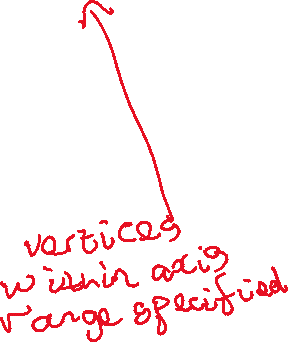 vertices
within axis
range specified